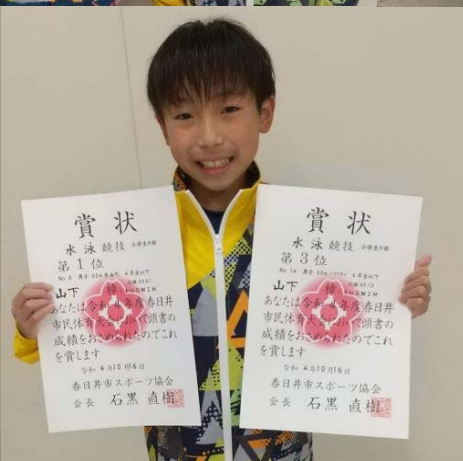 賞状
水泳競技 小学生の部
第1位
No. 6 男子 50m 自由形 4年生以下
山下
あなたは令和4年度春日井
市民体育大会において頭書の
成績をおさめられたのでこれ
を賞します
令和4年10月16日
春日井市スポーツ協会
会長 石黒 直樹
賞状
水泳競技 小学生の部
第3位
No. 14 男子 50m バタフライ 4年生以下
山下
あなたは令和4年度春日井
市民体育大会において頭書の
成績をおさめられたのでこれ
を賞します
令和4年10月16日
春日井市スポーツ協会
会長 石黒 直樹